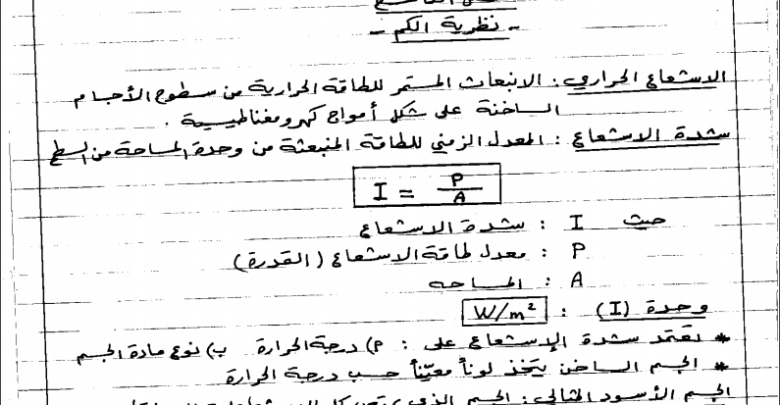 - نظرية الكم -
الاشعاع الحراري : الانبعاث المستمر للطاقة الحرارية من سطوح الأجسام
الساخنة على شكل أمواج كهرومغناطيسية .
شدة الاشعاع : المعدل الزمني للطاقة المنبعثة من وحدة المساحة من السطح
I = P/A
حيث I : شدة الاشعاع
P : معدل طاقة الاشعاع (القدرة)
A : المساحه
وحدة (I) : W/m²
* تعتمد شدة الإشعاع على : م) درجة الحرارة ب) نوع مادة الجسم
* الجسم الساخن يتخذ لوناً معيّناً حسب درجة الحرارة
الجسم الأسود المثالي : الجسم الذي